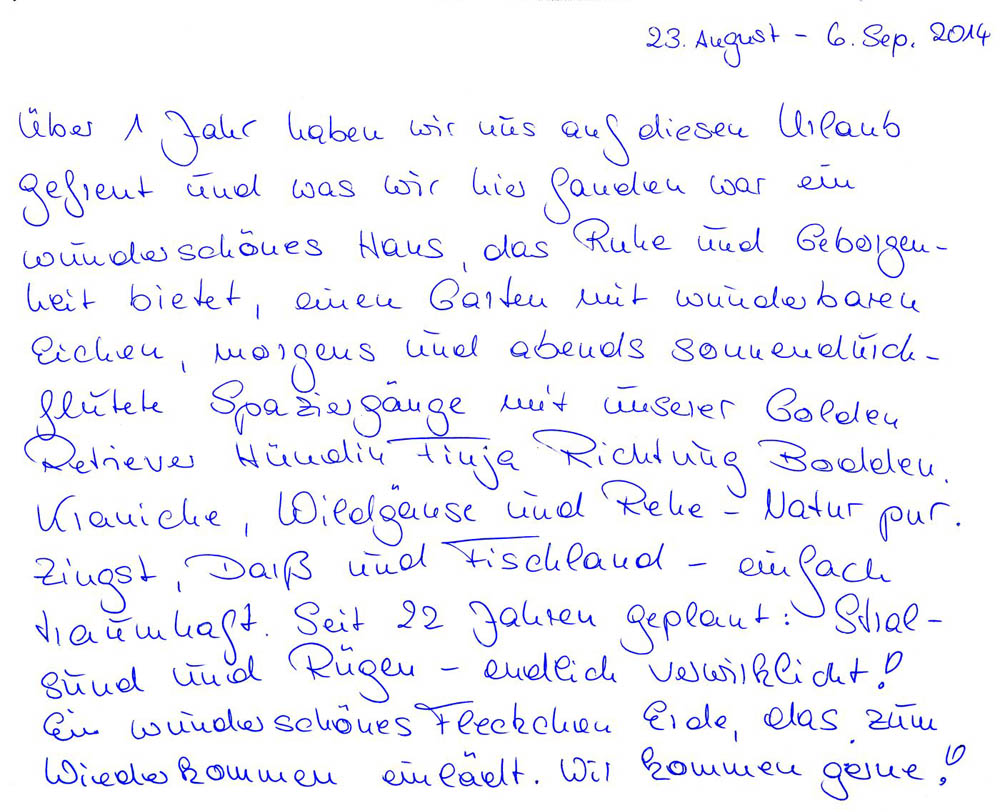 23. August - 6. Sep. 2014
Über 1 Jahr haben wir uns auf diesen Urlaub
gefreut und was wir hier fanden war ein
wunderschönes Haus, das Ruhe und Geborgen-
heit bietet, einen Garten mit wunderbaren
Eichen, morgens und abends sonnendurch-
flutete Spaziergänge mit unserer Golden
Retriever Hündin Finja Richtung Bodden.
Kraniche, Wildgänse und Rehe - Natur pur.
Zingst, Darß und Fischland - einfach
traumhaft. Seit 22 Jahren geplant: Stral-
sund und Rügen - endlich verwirklicht!
Ein wunderschönes Fleckchen Erde, das zum
Wiederkommen einlädt. Wir kommen gerne!